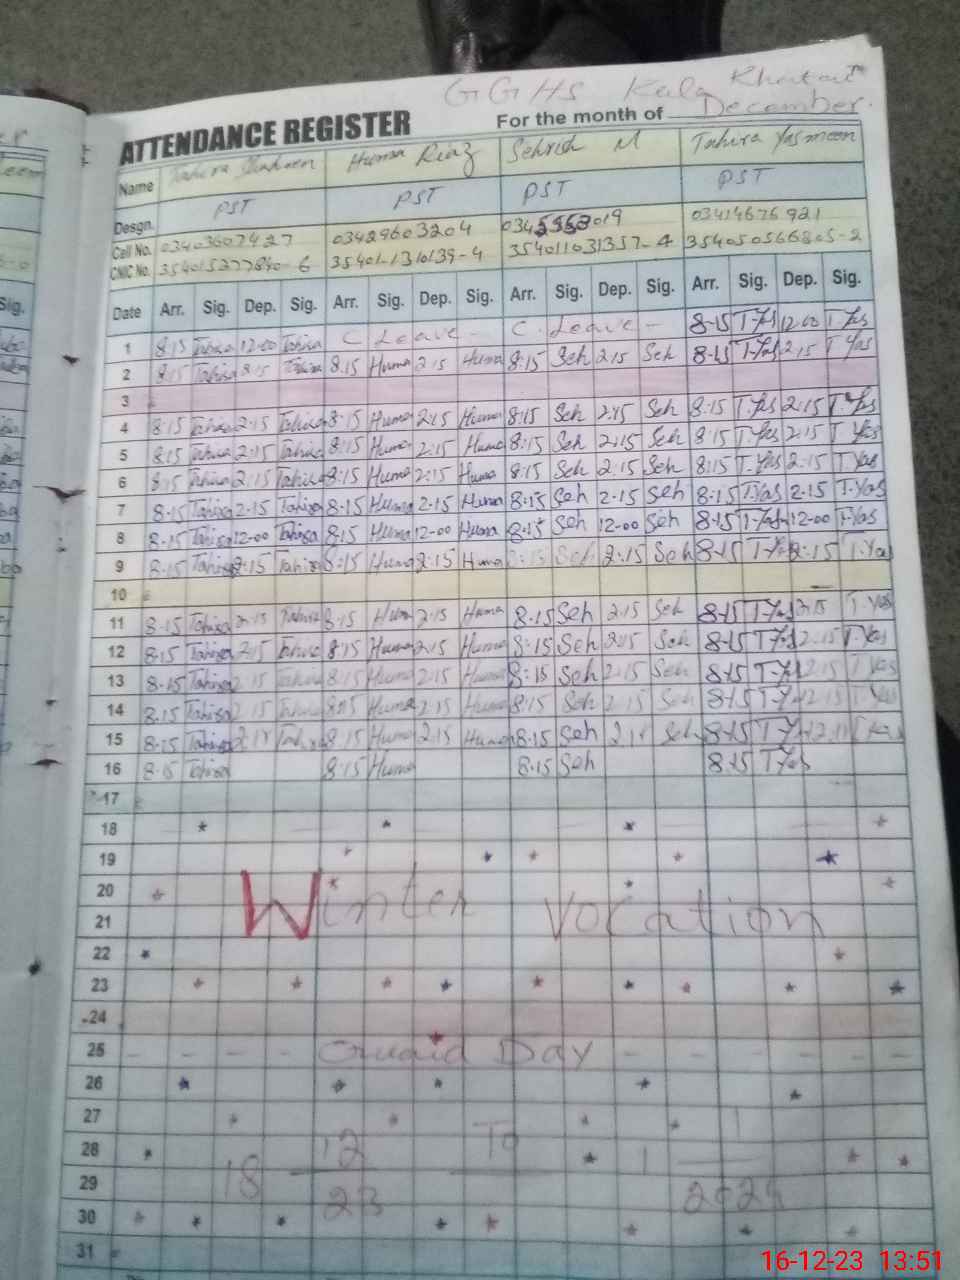 GGHS Kala Khatai
ATTENDANCE REGISTER For the month of December.
Name Tahira Shaheen Huma Riaz Sehrish M Tahira Yasmeen
Desgn. PST PST PST PST
Cell No. 03403607427 03429603204 03414676921
CNIC No. 35401-1310139-4 354011031357-4 354050566805-2
Date Arr. Sig. Dep. Sig. Arr. Sig. Dep. Sig. Arr. Sig. Dep. Sig. Arr. Sig. Dep. Sig.
1 8:15 Tahira 12-00 Tahira C Leave - C. Leave - 8-15 T-Yas 12-00 T-Yas
2 8:15 Tahira 2:15 Tahira 8:15 Huma 2:15 Huma 8:15 Seh 2:15 Seh 8-15 T-Yas 2:15 T-Yas
3
4 8:15 Tahira 2:15 Tahira 8:15 Huma 2:15 Huma 8:15 Seh 2:15 Seh 8:15 T.Yas 2:15 T.Yas
5 8:15 Tahira 2:15 Tahira 8:15 Huma 2:15 Huma 8:15 Seh 2:15 Seh 8:15 T.Yas 2:15 T.Yas
6 8:15 Tahira 2:15 Tahira 8:15 Huma 2:15 Huma 8:15 Seh 2:15 Seh 8:15 T.Yas 2:15 T.Yas
7 8-15 Tahira 2-15 Tahira 8-15 Huma 2-15 Huma 8:15 Seh 2-15 Seh 8-15 T.Yas 2-15 T-Yas
8 8-15 Tahira 12-00 Tahira 8:15 Huma 12-00 Huma 8:15 Seh 12-00 Seh 8-15 T-Yas 12-00 T-Yas
9 8-15 Tahira 2:15 Tahira 8:15 Huma 2:15 Huma 8:15 Seh 2:15 Seh 8-15 T-Yas 2:15 T.Yas
10
11 8-15 Tahira 2:15 Tahira 8:15 Huma 2:15 Huma 8.15 Seh 2:15 Seh 8-15 T-Yas 2:15 T-Yas
12 8.15 Tahira 2:15 Tahira 8:15 Huma 2:15 Huma 8:15 Seh 2:15 Seh 8-15 T-Yas 2:15 T-Yas
13 8-15 Tahira 2:15 Tahira 8:15 Huma 2:15 Huma 8:15 Seh 2:15 Seh 8-15 T-Yas 2:15 T Yas
14 8.15 Tahira 2:15 Tahira 8:15 Huma 2:15 Huma 8:15 Seh 2:15 Seh 8-15 T-Yas 2:15 T Yas
15 8-15 Tahira 2:15 Tahira 8:15 Huma 2:15 Huma 8.15 Seh 2:15 Seh 8-15 T-Yas 2:15 T Yas
16 8-15 Tahira 8:15 Huma 8.15 Seh 8-15 T-Yas
17
18
19
20
Winter Vocation
21
22
23
24
25 - - - - Quaid Day - - - - - - -
26
27
28
18 12 To 1
29
23 2024
30
31
16-12-23 13:51